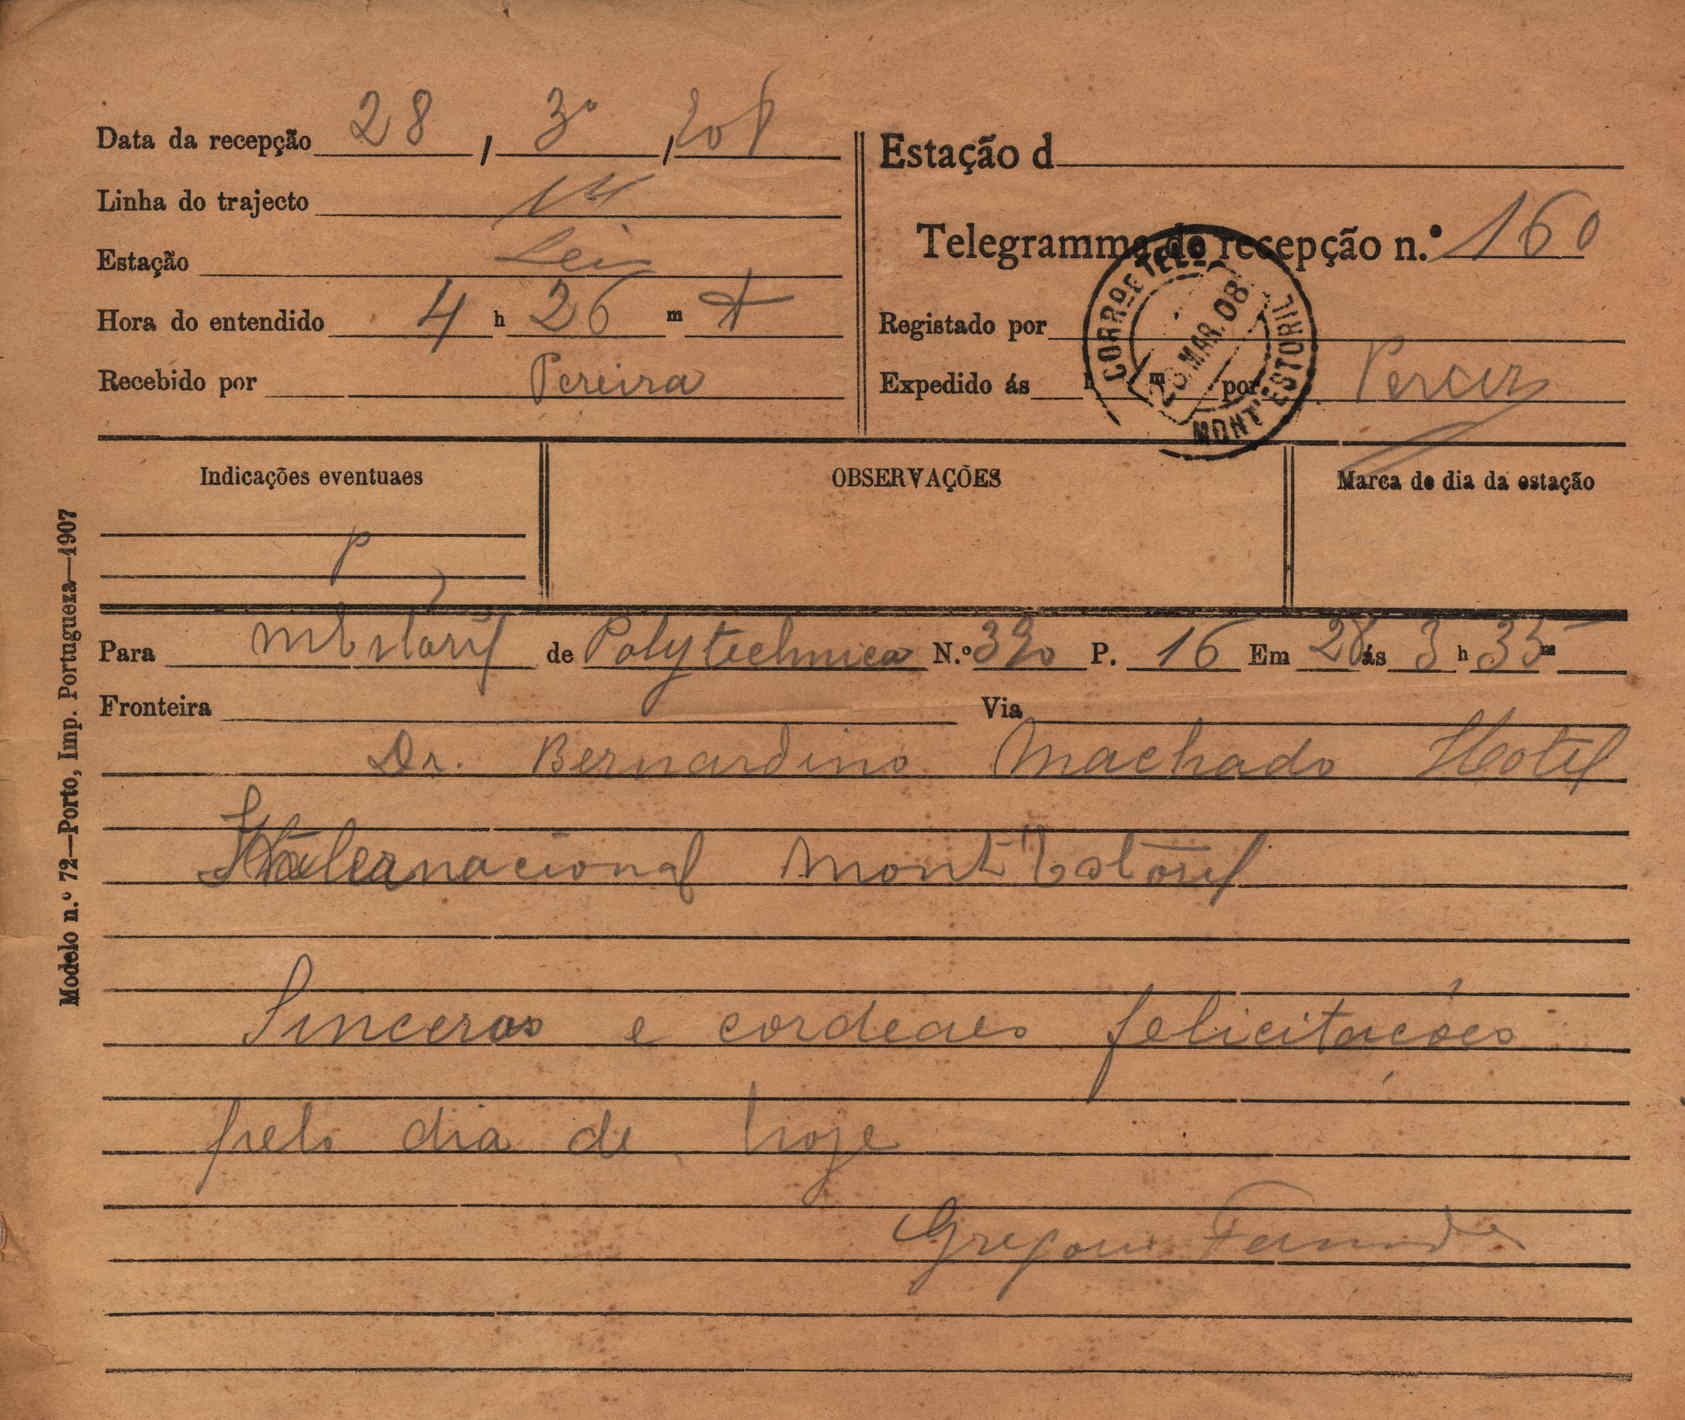 Data da recepção 28, 3º, 908
Linha do trajecto
Estação
Hora do entendido 4 h 26 m t
Recebido por Pereira
Estação d
Telegramma de recepção n.º 160
Registado por
Expedido ás h m por
CORRº E TELº
28.MAR.08
MONT'ESTORIL
Indicações eventuaes
P
OBSERVAÇÕES
Marca do dia da estação
Para MEstoril de Polytechnica N.º 320 P. 16 Em 28 ás 3 h 35 m
Fronteira Via
Dr. Bernardino Machado Hotel
Internacional Mont'Estoril
Sinceras e cordeaes felicitações
pelo dia de hoje
Gregorio Fernandes
Modelo n.º 72—Porto, Imp. Portugueza—1907